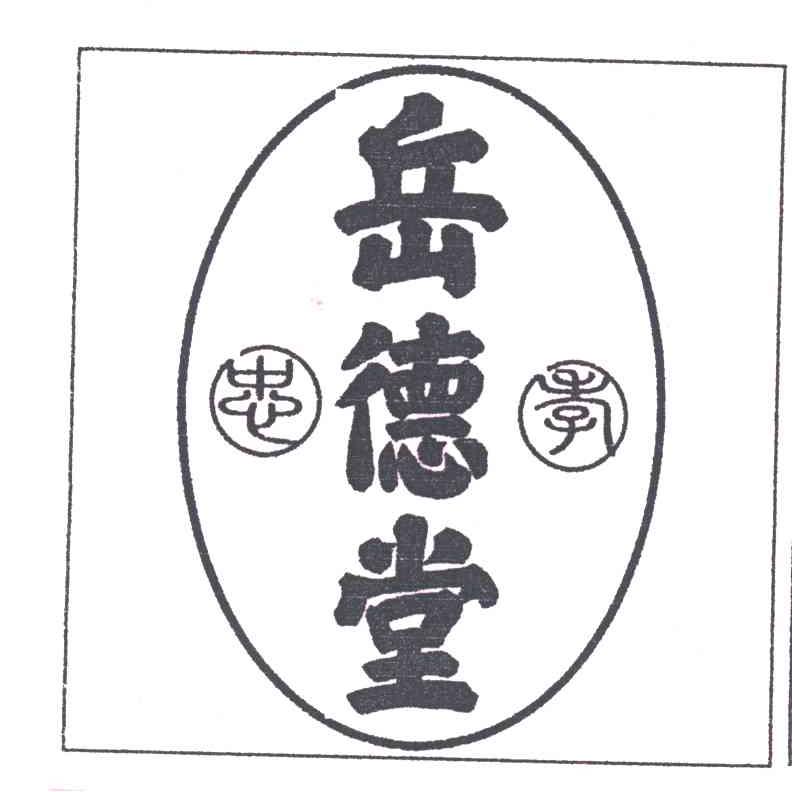 岳德堂
孝
忠